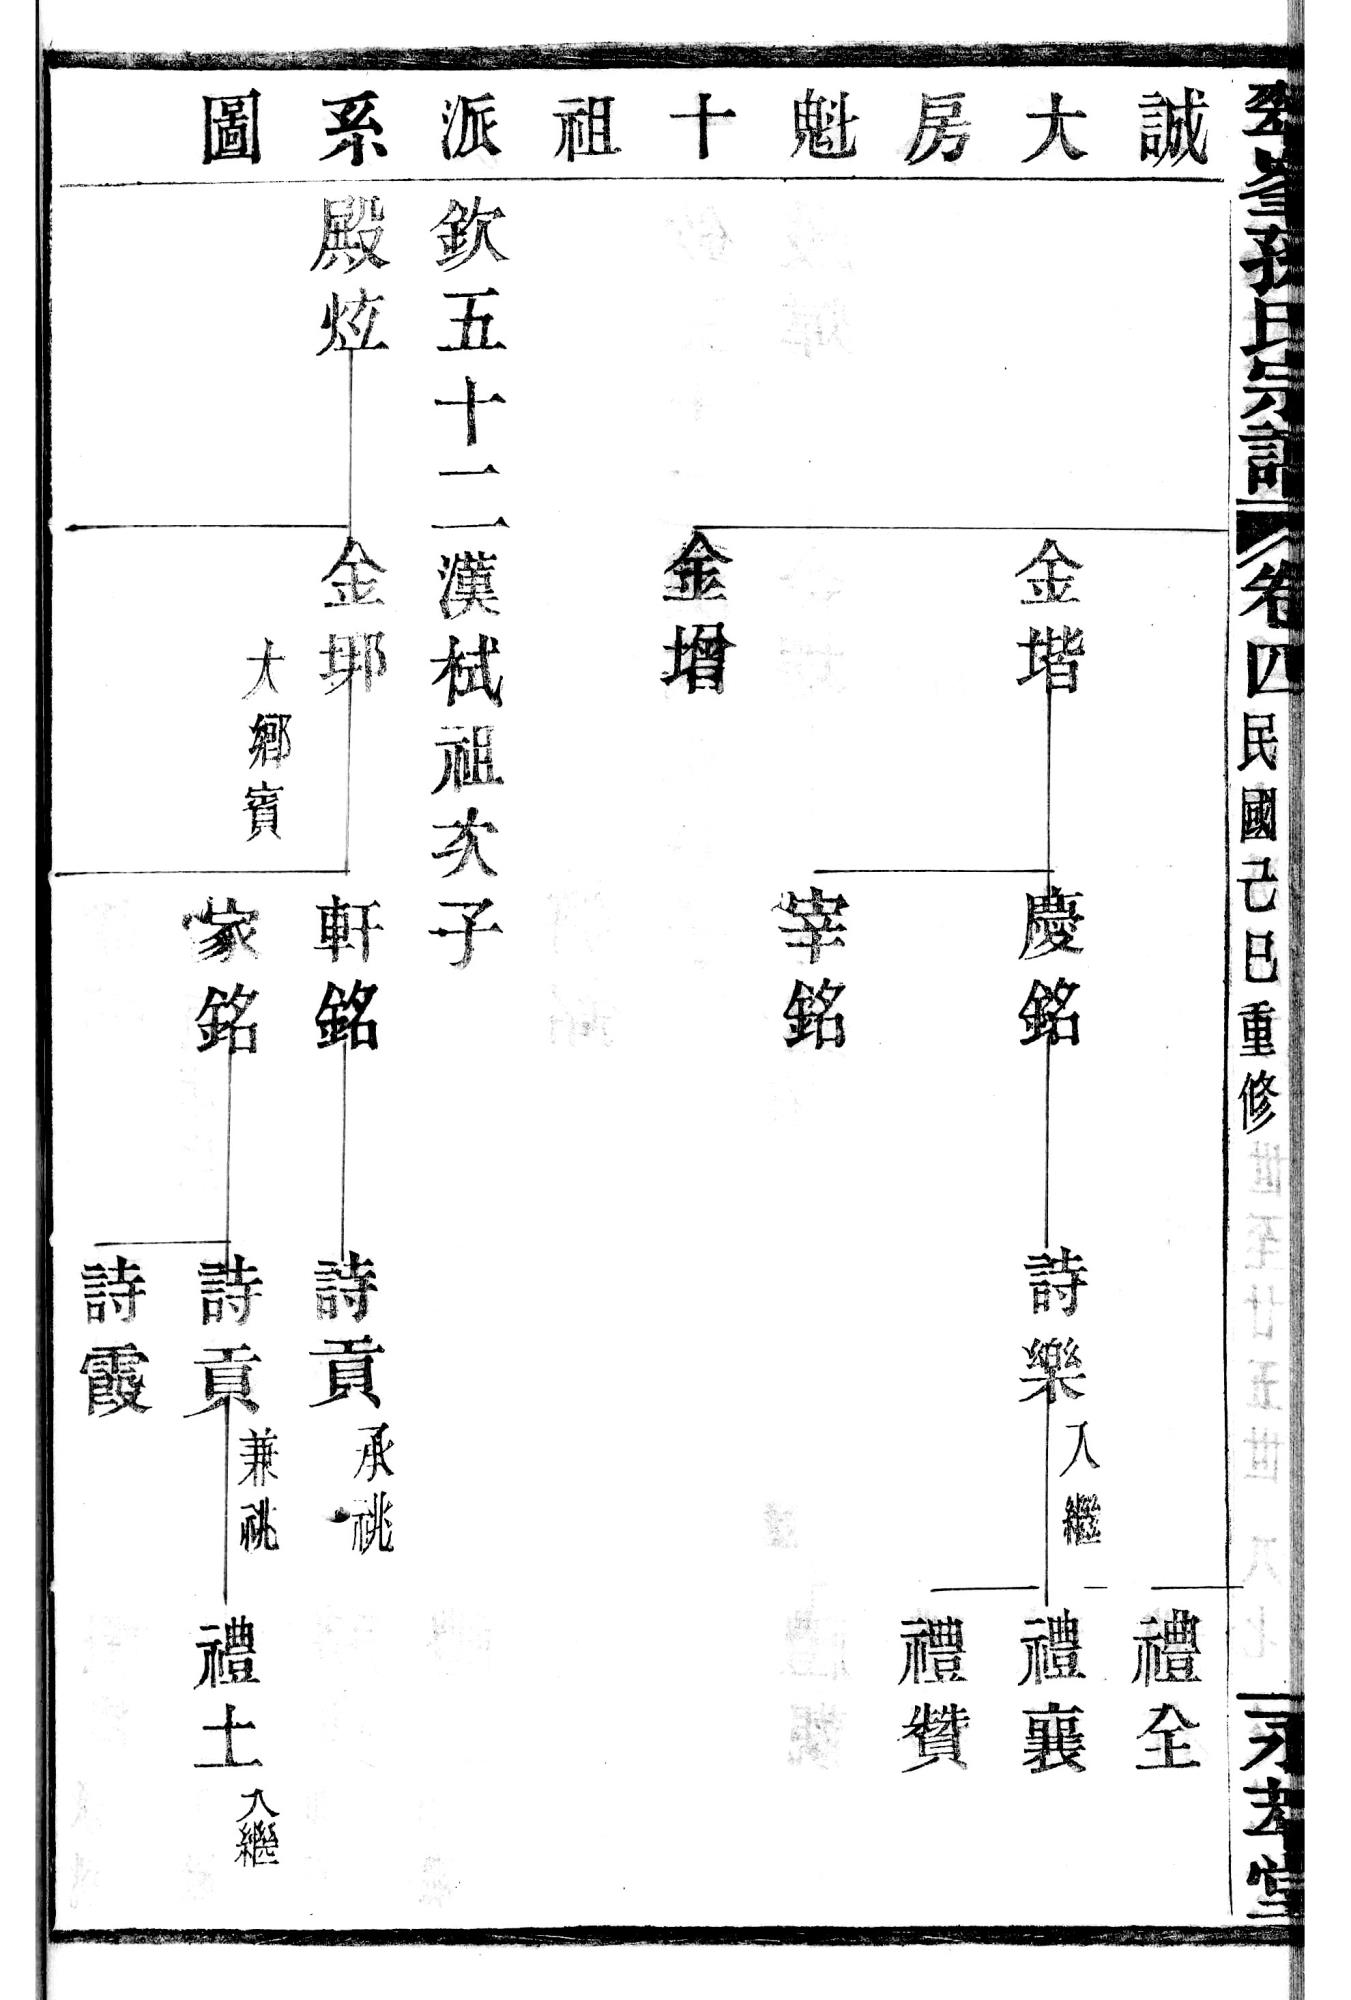 孫氏宗譜
卷四
民國己巳重修
堂
誠大房魁十祖派系圖
禮全
金堦
慶銘
詩樂
入繼
禮襄
禮贊
宰銘
金增
欽五十二漢栻祖次子
殿炫
金䢼
大鄉賓
軒銘
詩貢
承祧
家銘
詩貢
兼祧
禮士
入繼
詩霞